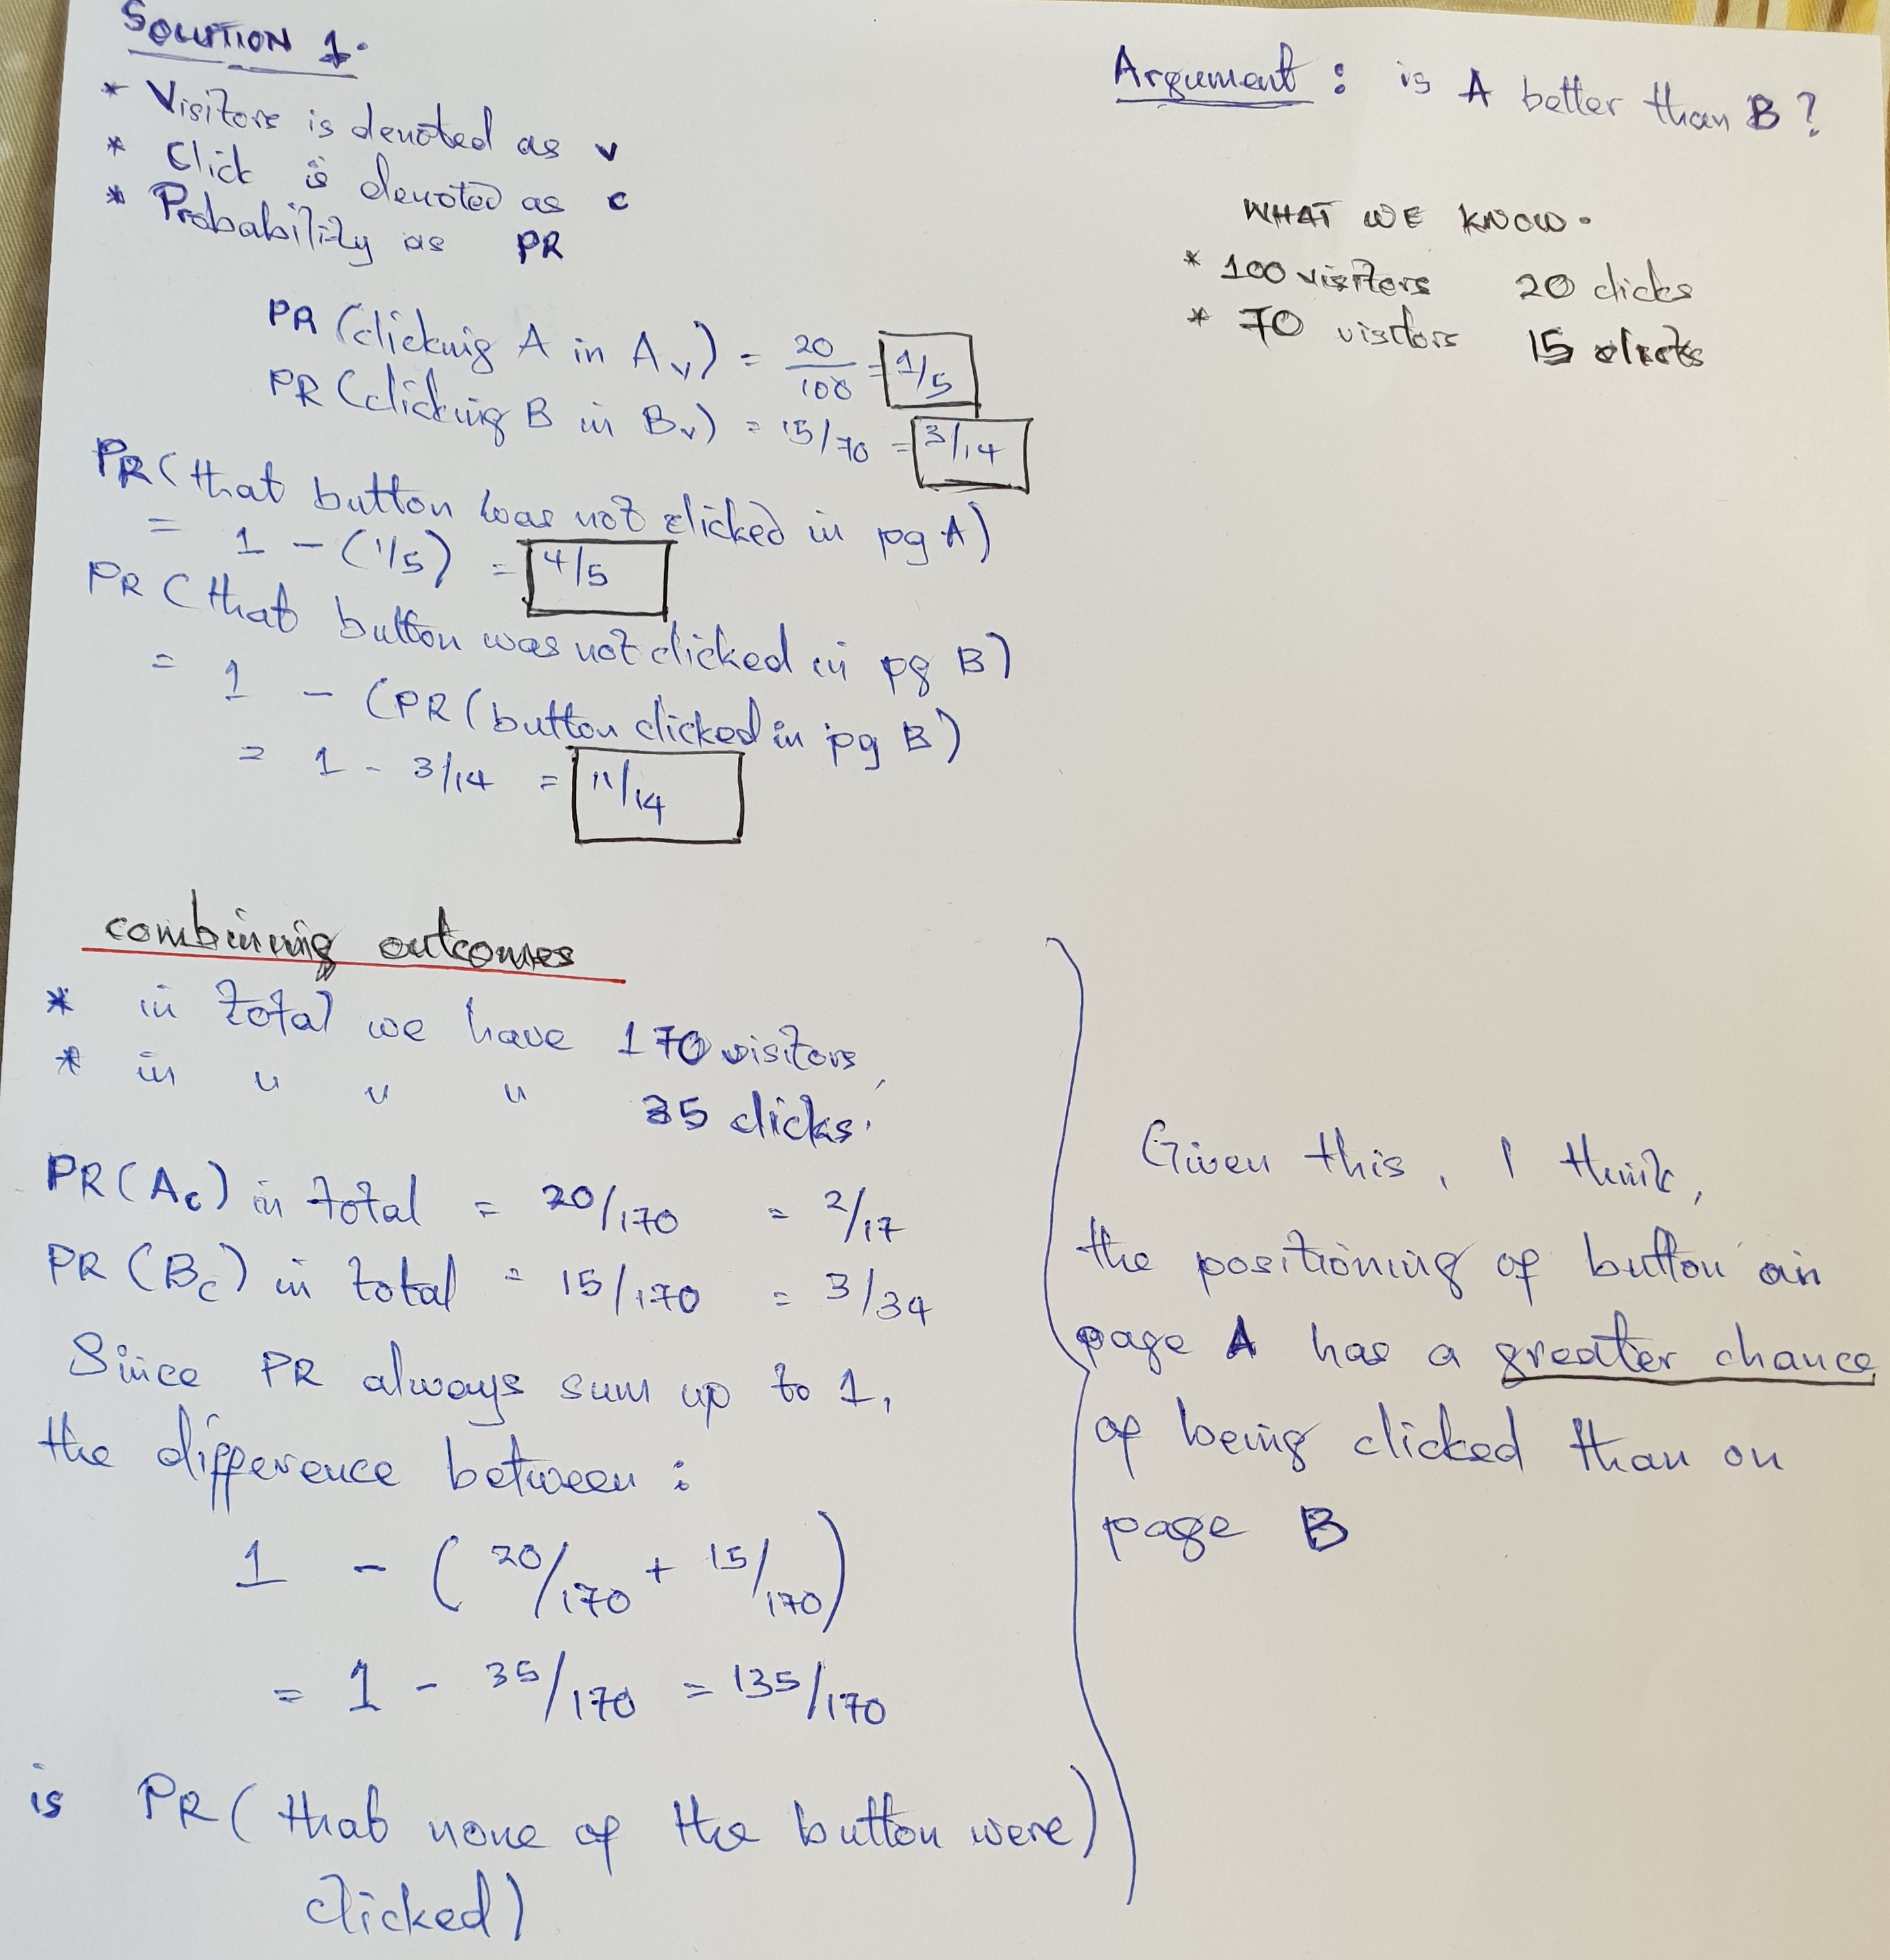 SOLUTION 1.
* Visitors is denoted as v
* Click is denoted as c
* Probability as PR
PR (clicking A in Av) = 20/100 = 1/5
PR (clicking B in Bv) = 15/70 = 3/14
PR (that button was not clicked in pg A)
= 1 - (1/5) = 4/5
PR (that button was not clicked in pg B)
= 1 - (PR (button clicked in pg B)
= 1 - 3/14 = 11/14
Argument : is A better than B?
WHAT WE KNOW.
* 100 visitors 20 clicks
* 70 visitors 15 clicks
combining outcomes
* in total we have 170 visitors,
* in " " " 35 clicks.
PR (Ac) in total = 20/170 = 2/17
PR (Bc) in total = 15/170 = 3/34
Since PR always sum up to 1,
the difference between :
1 - (20/170 + 15/170)
= 1 - 35/170 = 135/170
is PR (that none of the button were)
clicked)
Given this, I think,
the positioning of button on
page A has a greater chance
of being clicked than on
page B